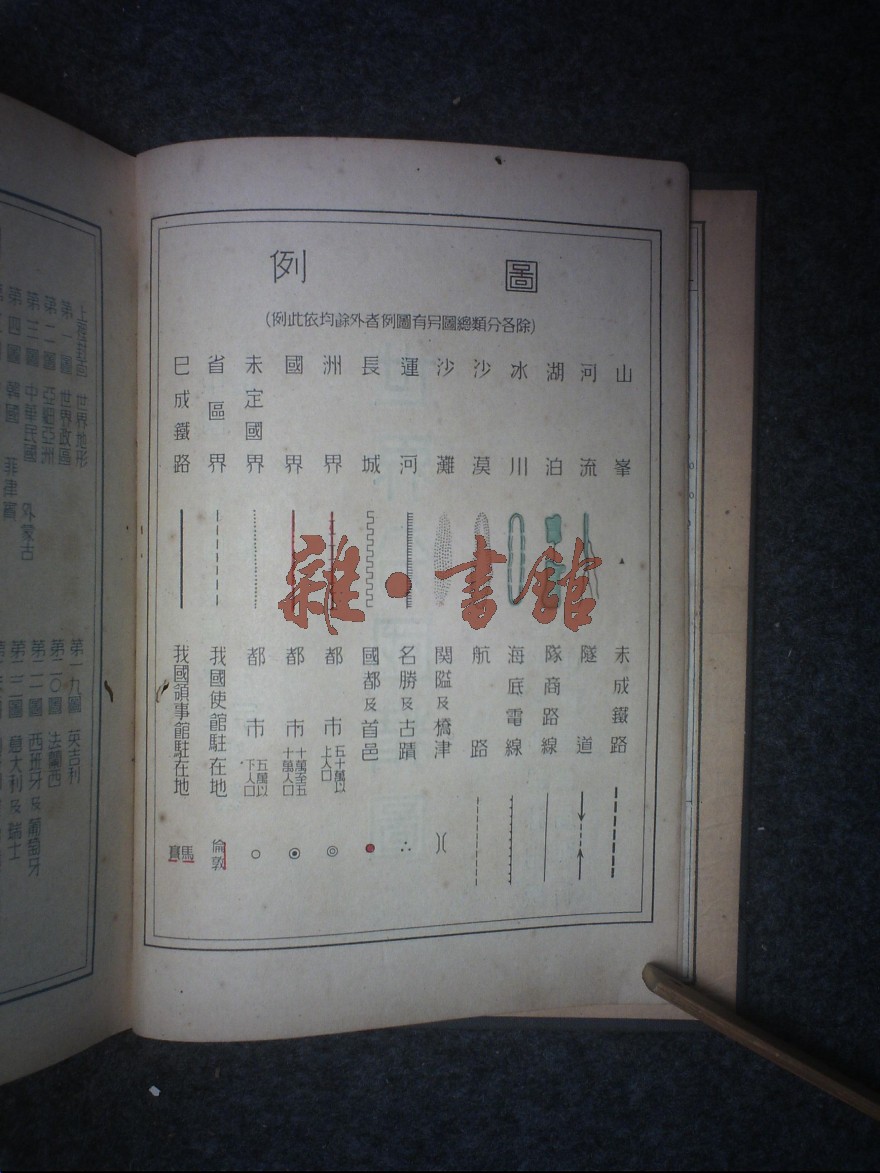 圖例
(除各分類總圖另有圖例者外餘均依此例)
山峯
河流
湖泊
冰川
沙漠
沙灘
運河
長城
洲界
國界
未定國界
省區界
已成鐵路
未成鐵路
隧道
隊商路線
海底電線
航路
関隘及橋津
名勝及古蹟
國都及首邑
都市 五十萬以上人口
都市 十萬至五十萬人口
都市 五萬以下人口
我國使館駐在地
倫敦
我國領事館駐在地
馬賽
雜·書館
世界地形
第一圖 世界政區
第二圖 亞細亞洲
第三圖 中華民國 外蒙古
第四圖 韓國 菲律賓
第一九圖 英吉利
第二〇圖 法蘭西
第二一圖 西班牙及葡萄牙
第二二圖 意大利及瑞士